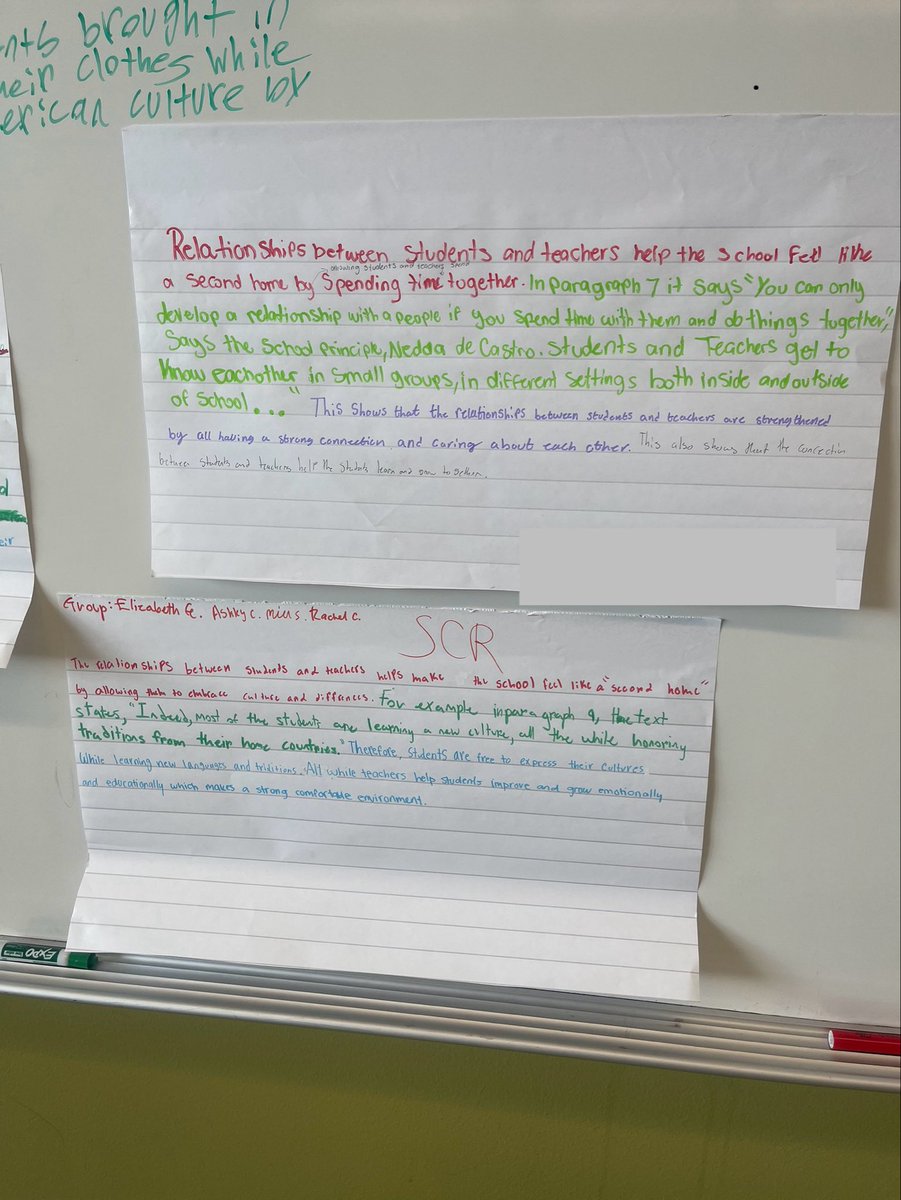 nts brought in
heir clothes while
erican culture by
Relationships between Students and teachers help the School feel like
allowing students and teachers spend
a second home by Spending time together. In paragraph 7 it says "You can only
develop a relationship with a people if you spend time with them and do things together,"
Says the School principle, Nedda de Castro. Students and Teachers get to
Know eachother in small groups, in different settings both inside and outside
of School..."This shows that the relationships between students and teachers are strengthened
by all having a strong connection and caring about each other. This also shows that the connection
between students and teachers help the students learn and grow together.
Group: Elizabeth G. Ashly C. Rachel C.
SCR
The relationships between students and teachers helps make the school feel like a "second home"
by allowing them to embrace culture and diffrences. For example in paragraph 9, the text
states, "Indeed, most of the students are learning a new culture, all the while honoring
traditions from their home countries." Therefore, students are free to express their cultures
While learning new languages and triditions. All while teachers help students improve and grow emotionally
and educationally which makes a strong comfortable environment.
d
eir
EXPO